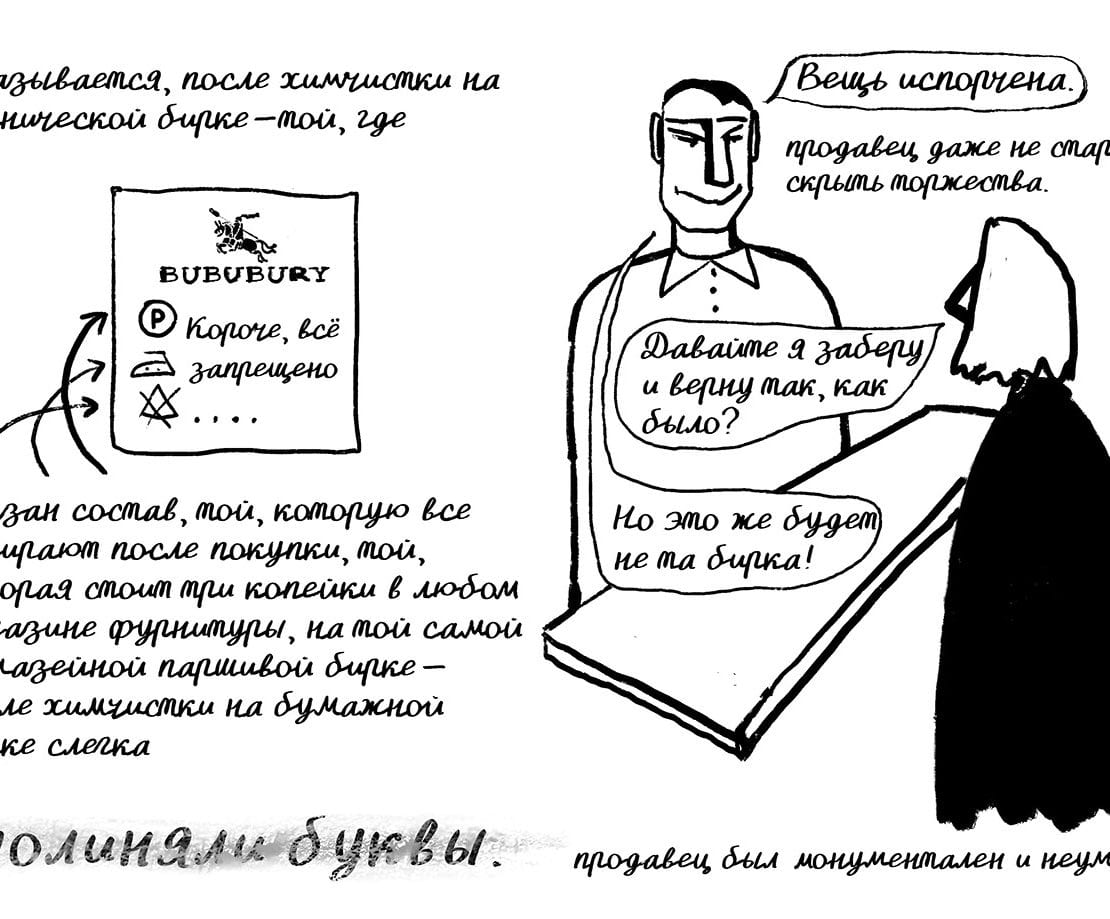 азывается, после химчистки на
нической бирке – той, где
BUBUBURY
P Короче, всё
запрещено
....
зан состав, той, которую все
ирают после покупки, той,
орая стоит три копейки в любом
азине фурнитуры, на той самой
лазейной паршивой бирке –
ле химчистки на бумажной
ке слегка
олиняли буквы.
Вещь испорчена.
продавец даже не стар
скрыть торжества.
Давайте я заберу
и верну так, как
было?
Но это же будет
не та бирка!
продавец был монументален и неум